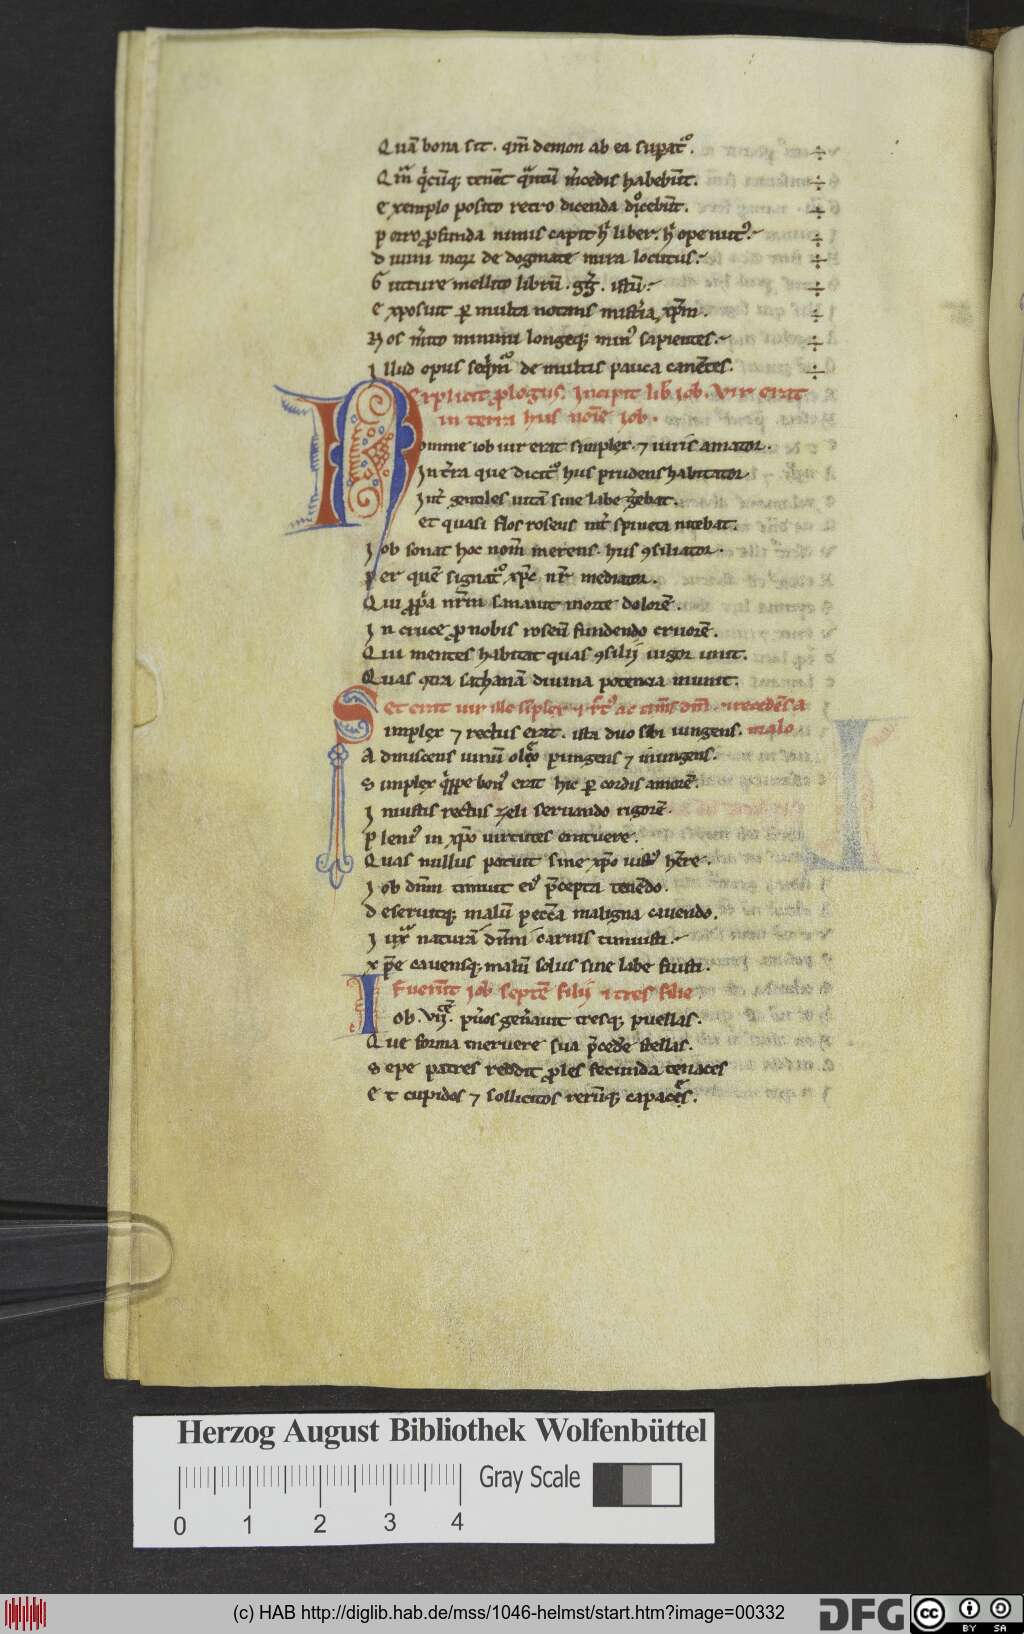 Quā bona sit. qm̄ demon ab ea supat᷑.
Qm̄ q̇cūq; tenēt q̄ntū m̄cedis habebūt.
exemplo posito retro dicenda docebūt.
porro ꝓfunda nimis capit h̄ liber. h̄ ope nitit᷑.
diuini mox de dogmate mira locutus.
Gutture mellito librū .gg̃. istū.
exposuit ꝑ multa notans mist̄ia xp̄m.
Hos m̄ito minimi longeq; min᷒ sapientes.
Illud opus seq̇m᷑ de multis pauca canētes.
Explicit ꝓlogus. Incipit lib̄ iob. Vir erat
in terra hus noīe iob.
Nomine iob uir erat simplex. ⁊ iuris amator.
In t̄ra que dicit᷑ hus prudens habitator.
Int̄ gentiles uitā sine labe g̃ebat.
et quasi flos roseus int̄ spineta nitebat.
Iob sonat hoc nom̄ merens. hus ꝯsiliator.
per quē signat᷑ xp̄c nr̄ mediator.
Qui ꝓp̄a nr̄m sanauit morte dolorē.
In cruce ꝓ nobis roseū fundendo cruorē.
Qui mentes habitat quas ꝯsilij uigor unit.
Quas ꝯtra sathanā diuina potencia munit.
Et erat uir ille siplex ⁊ rct᷒ ac tim̄s dm̄. ⁊ recedēs a
malo
Simplex ⁊ rectus erat. ista duo sibi iungens.
Admiscens uinū oleo pungens ⁊ inungens.
Simplex q̇ppe bon᷒ erat hic ꝑ cordis amorē.
Iniustis rectus zeli seruando rigorē.
pleni᷒ in xp̄o uirtutes emicuere.
Quas nullus potuit sine xp̄o iustꝰ hr̄e.
Iob dn̄m timuit ei᷒ p̄cepta tenēdo.
deseruitq; malū pecc̄a maligna cauendo.
Iuxta naturā dn̄m carnis timuisti.
xp̄e cauensq; malū solus sine labe fuisti.
Fuerūt Iob septē filij ⁊ tres filie
Iob .vij. pu̇os genauit tresq; puellas.
Que forma meruere sua p̄cedere stellas.
Sepe patres reddit ꝓles fecunda tenaces
Et cupidos ⁊ sollicitos rerūq; capaces.
Herzog August Bibliothek Wolfenbüttel
Gray Scale
0 1 2 3 4
(c) HAB http://diglib.hab.de/mss/1046-helmst/start.htm?image=00332
DFG
cc BY SA